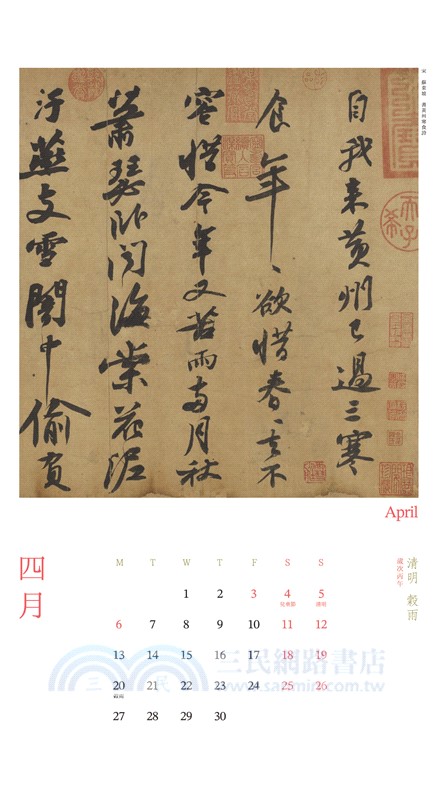 宋 蘇東坡 書黃州寒食詩
自我來黃州已過三寒
食年〻欲惜春〻去不
容惜今年又苦雨兩月秋
蕭瑟卧聞海棠花泥
汙燕支雪闇中偷負
April
四月
清明 穀雨
歲次丙午
M T W T F S S
1 2 3 4 5
兒童節 清明
6 7 8 9 10 11 12
13 14 15 16 17 18 19
20 21 22 23 24 25 26
穀雨
27 28 29 30
三民網路書店
三 民
www.sanmin.com.tw